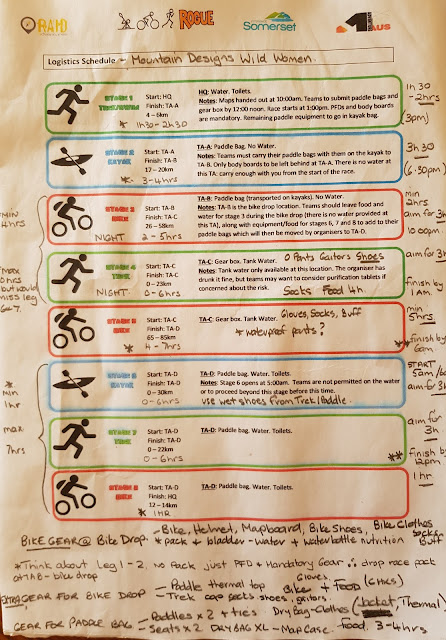 RAID
ROGUE
Somerset
AUS
Logistics Schedule – Mountain Designs Wild Women.
STAGE 1
Start: HQ
Finish: TA-A
4 – 6km
* 1h30 - 2h30
HQ: Water. Toilets.
Notes: Maps handed out at 10:00am. Teams to submit paddle bags and
gear box by 12:00 noon. Race starts at 1:00pm. PFDs and body boards
are mandatory. Remaining paddle equipment to go in kayak bag.
1h 30
- 2hrs
(3pm)
STAGE 2
KAYAK
Start: TA-A
Finish: TA-B
17 – 20km
* 3-4hrs
TA-A: Paddle Bag. No Water.
Notes: Teams must carry their paddle bags with them on the kayak to
TA-B. Only body boards to be left behind at TA-A. There is no water at
this TA: carry enough with you from the start of the race.
3h 30
(6:30pm)
STAGE 3
BIKE
Start: TA-B
Finish: TA-C
26 – 58km
NIGHT 2 - 5hrs
TA-B: Paddle bag (transported on kayaks). No Water.
Notes: TA-B is the bike drop location. Teams should leave food and
water for stage 3 during the bike drop (there is no water provided at
this TA), along with equipment/food for stages 6, 7 and 8 to add to their
paddle bags which will then be moved by organisers to TA-D.
min
2hrs
aim for 3h
10:00pm
MIN
4hrs
STAGE 4
TREK
Start: TA-C
Finish: TA-C
0 – 23km
NIGHT. 0 - 6hrs
TA-C: Gear box. Tank Water. O Pants Gaitors Shoes
Notes: Tank water only available at this location. The organiser has
drunk it fine, but teams may want to consider purification tablets if
concerned about the risk. Socks Food 4h
aim for 3h
finish by
1am.
max
but would
miss leg
6+7.
STAGE 5
BIKE
Start: TA-C
Finish: TA-D
65 – 85km
* 4 - 7hrs
TA-C: Gear box. Tank Water. Gloves, Socks, Buff
* waterproof pants?
min
5hrs
** finish by
6am
STAGE 6
KAYAK
Start: TA-D
Finish: TA-D
0 – 30km
0 - 6hrs
TA-D: Paddle bag. Water. Toilets.
Notes: Stage 6 opens at 5:00am. Teams are not permitted on the water
or to proceed beyond this stage before this time.
use wet shoes from Trek/Paddle.
START
5am
aim for 3h
*
min
1hr
max
7hrs
STAGE 7
TREK
Start: TA-D
Finish: TA-D
0 – 22km
0 - 6hrs
TA-D: Paddle bag. Water. Toilets.
aim for
3h
** finish by
12pm
STAGE 8
BIKE
Start: TA-D
Finish: HQ
12 – 14km
* 1HR
TA-D: Paddle bag. Water. Toilets.
1 hr
BIKE GEAR @ Bike Drop. - Bike, Helmet, Mapboard, Bike Shoes, Bike Clothes
* pack & bladder - water & waterbottle nutrition Socks Buff
* Think about Leg 1 - 2. No Pack just PFD & Mandatory Gear ∴ drop race pack
at TAB - bike drop
EXTRA GEAR FOR BIKE DROP - Paddle thermal top Gloves. Bike + Food (6hrs)
- Trek cap pants shoes, gaitors.
GEAR FOR PADDLE BAG - Paddles x 2 + ties Dry Bag - Clothes (Jacket, Thermal)
- Seats x 2 DRY BAG XL - Map Case. Food 3-4hrs